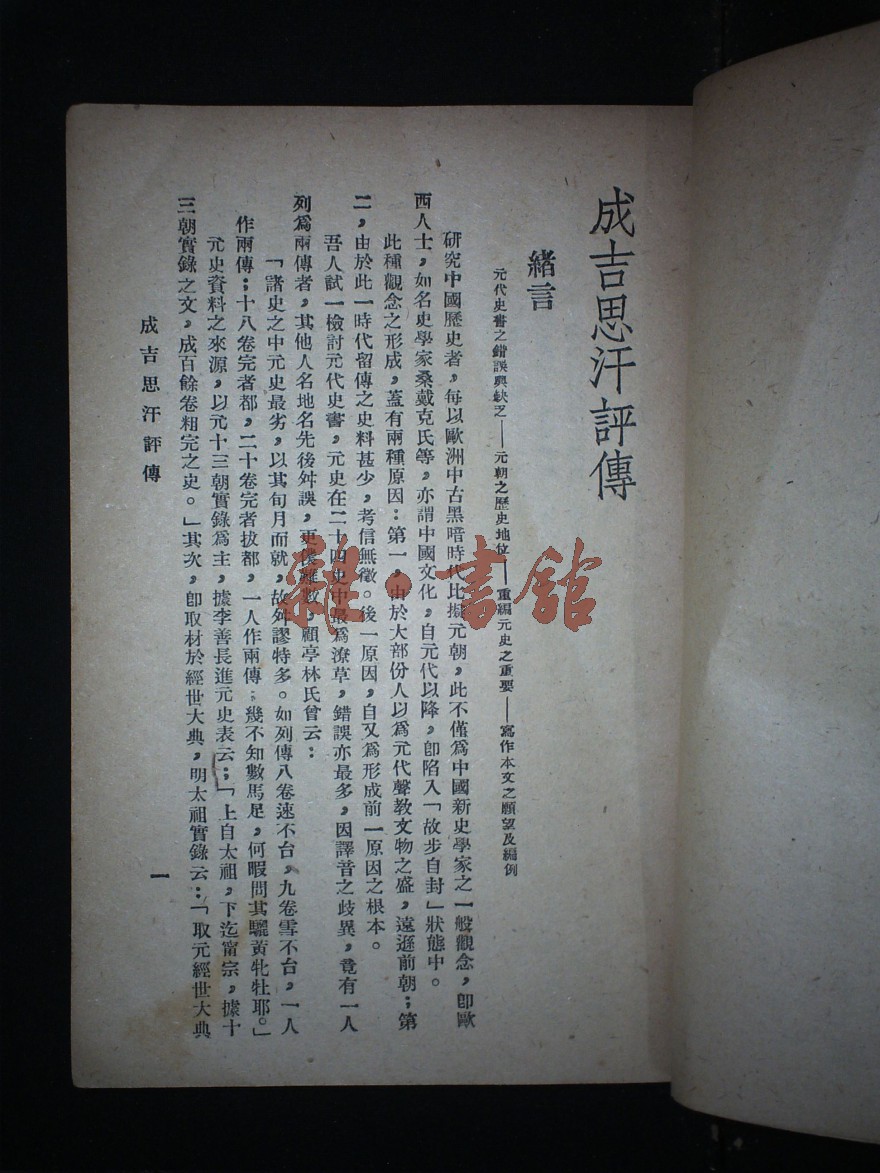 成吉思汗評傳
緒言
元代史書之錯誤與缺乏——元朝之歷史地位——重編元史之重要——寫作本文之願望及編例
研究中國歷史者，每以歐洲中古黑暗時代比擬元朝，此不僅爲中國新史學家之一般觀念，卽歐
西人士，如名史學家桑戴克氏等，亦謂中國文化，自元代以降，卽陷入「故步自封」狀態中。
此種觀念之形成，蓋有兩種原因：第一，由於大部份人以爲元代聲教文物之盛，遠遜前朝；第
二，由於此一時代留傳之史料甚少，考信無徵。後一原因，自又爲形成前一原因之根本。
吾人試一檢討元代史書，元史在二十四史中最爲潦草，錯誤亦最多，因譯音之歧異，竟有一人
列爲兩傳者，其他人名地名先後舛誤，更僕難數，顧亭林氏曾云：
「諸史之中元史最劣，以其旬月而就，故舛謬特多。如列傳八卷速不台，九卷雪不台，一人
作兩傳；十八卷完者都，二十卷完者拔都，一人作兩傳；幾不知數馬足，何暇問其驪黃牝牡耶。」
元史資料之來源，以元十三朝實錄爲主，據李善長進元史表云；「上自太祖，下迄甯宗，據十
三朝實錄之文，成百餘卷粗完之史。」其次，卽取材於經世大典，明太祖實錄云：「取元經世大典
成吉思汗評傳
一
雜·書館